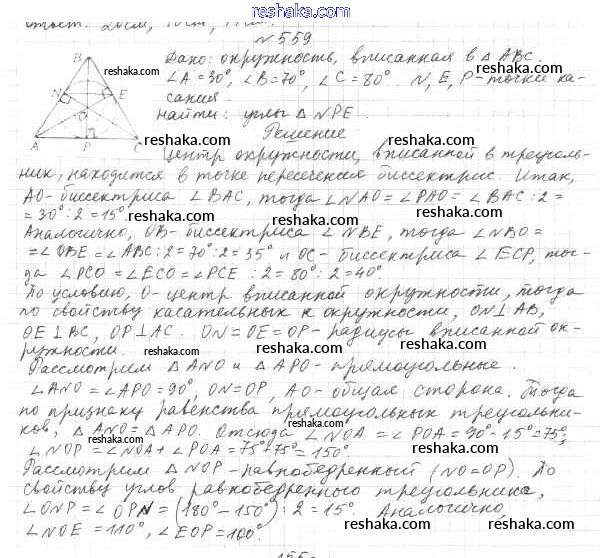 ответ: 20см, 10см, 11см.
reshaka.com
№559
reshaka.com
Дано: окружность, вписанная в △ABC.
∠A=30°, ∠B=70°, ∠C=80°. N, E, P-точки ка-
сания.
Найти: углы △NPE.
Решение
B
N
E
O
A
P
C
Центр окружности, вписанной в треуголь-
ник, находится в точке пересечения биссектрис. Итак,
AO-биссектриса ∠BAC, тогда ∠NAO=∠PAO=∠BAC:2=
=30°:2=15°
Аналогично, OB-биссектриса ∠NBE, тогда ∠NBO=
=∠OBE=∠ABC:2=70°:2=35° и OC-биссектриса ∠ECP, тог-
да ∠PCO=∠ECO=∠PCE:2=80°:2=40°
По условию, O-центр вписанной окружности, тогда
по свойству касательных к окружности, ON⊥AB,
OE⊥BC, OP⊥AC. ON=OE=OP-радиусы вписанной ок-
ружности.
Рассмотрим △ANO и △APO-прямоугольные.
∠ANO=∠APO=90°, ON=OP, AO-общая сторона. Тогда
по признаку равенства прямоугольных треугольни-
ков, △ANO=△APO. Отсюда ∠NOA=∠POA=90°-15°=75°;
∠NOP=∠NOA+∠POA=75°+75°=150°
Рассмотрим △NOP-равнобедренный (NO=OP). По
свойству углов равнобедренного треугольника,
∠ONP=∠OPN=(180°-150°):2=15°. Аналогично,
∠NOE=110°, ∠EOP=100°.